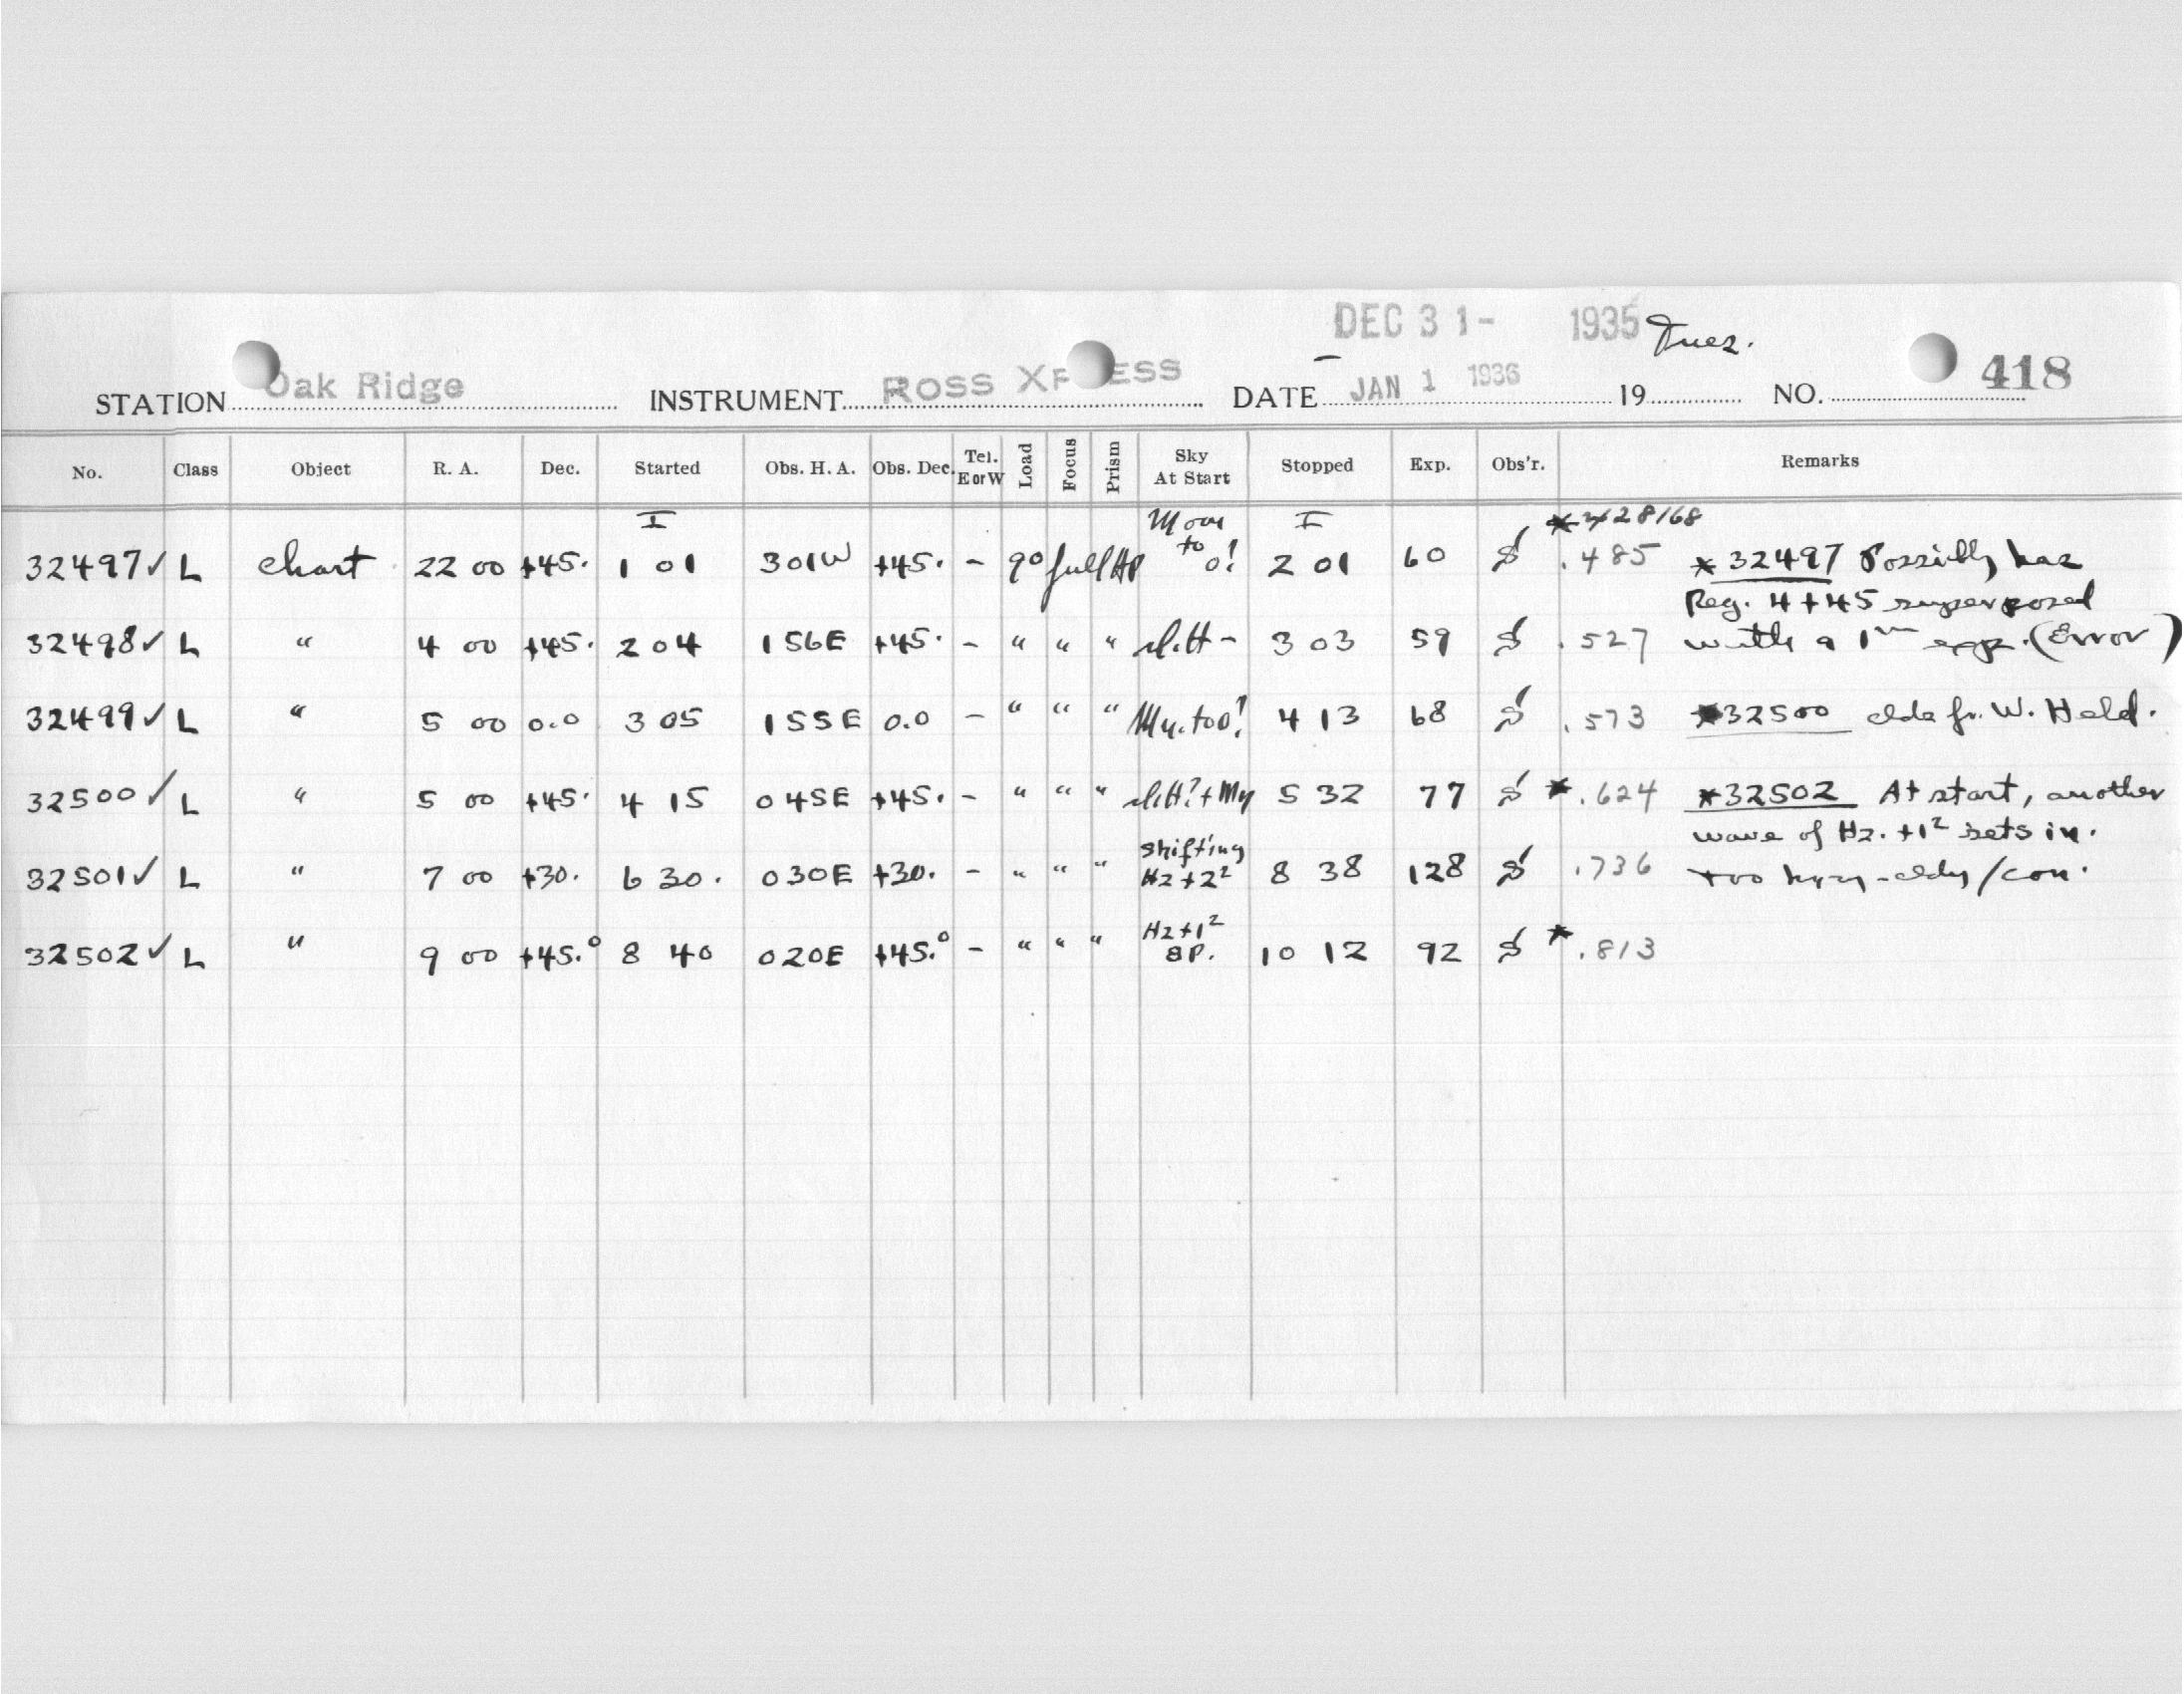 DEC 31- 1935 Tues.
STATION Oak Ridge INSTRUMENT ROSS XP ESS DATE JAN 1 1936 19 NO. 418
No. Class Object R. A. Dec. Started Obs. H. A. Obs. Dec. Tel. E or W Load Focus Prism Sky At Start Stopped Exp. Obs'r. Remarks
32497✓ L chart 22 00 +45. 1 01 301W +45. - 90 full AP Moon to 0! 2 01 60 .485 *32497 Possibly has
Reg. 4+45 superposed
32498✓ L " 4 00 +45. 2 04 156E +45. - " " " 3 03 59 .527 with a 1m exp. (Error)
32499✓ L " 5 00 0.0 3 05 155E 0.0 - " " " 4 13 68 .573 *32500 clds fr. W. Held.
32500✓ L " 5 00 +45. 4 15 045E +45. - " " " 5 32 77 * .624 *32502 At start, another
wave of Hz. +1² sets in.
32501✓ L " 7 00 +30. 6 30. 030E +30. - " " " shifting Hz +2² 8 38 128 .736 too hazy-cldy/con.
32502✓ L " 9 00 +45.° 8 40 020E +45.° - " " " Hz+1² 8P. 10 12 92 * .813